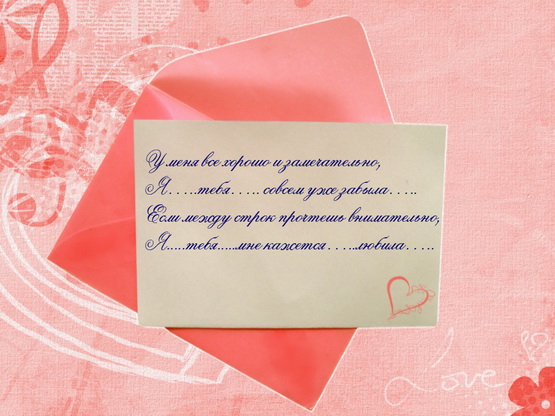 У меня все хорошо и замечательно,
Я.....тебя..... совсем уже забыла.....
Если между строк прочтешь внимательно,
Я.....тебя.....мне кажется.....любила.....
Love